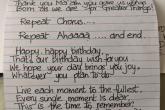 Thank you Ma'am you gave us wings
Repeat Chorus....
Repeat Ahaaaa ...... and end.
Happy, happy birthday,
That's our birthday wish for you
We hope your day brings you joy,
Whatever you plan to do
Live each moment to the fullest
Every single moment is dear
This is the time to remember